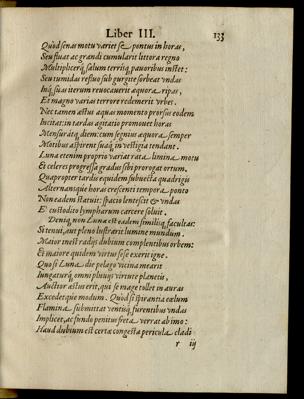 Liber III. 133
Quòd senas motu variet se pontus in horas,
Seu fluat ac grandi cumularit littora regno
Multiplicerq́; salum terrisq́ pauoribus instet:
Seu tumidas refluo sub gurgite sorbeat vndas
Inq́; suas iterum reuocauerit æquora ripas,
Et magno varias terrore redemerit vrbes.
Nec tamen æstus aquas momento prorsus eodem
Incitat: in tardas agitatio promouet horas
Mensuratq́ diem: cum segnius æquora semper
Motibus aspirent suaq́ in vestigia tendant.
Luna etenim proprio varias rata limina motu
Et celeres progressa gradus sibi prorogat ortum.
Quapropter tardis equidem subuecta quadrigis
Alternansque horas crescenti tempora ponto
Non eadem statuit: spacio lentescit & vndas
E' custodito lympharum carcere soluit.
Deniq́ non Luna est eadem similisq́ facultas:
Si tenui, aut pleno lustrarit lumine mundum.
Maior inest radijs dubium complentibus orbem:
Et maiore quidem virtus sese exerit igne.
Quo si Luna die pelago vicina mearit
Iungaturq́ omni pluuijs virtute planetis,
Auctior æstus erit, qui se mage tollet in auras
Excedetque modum. Quod si spirantia cœlum
Flamina submittat ventisq́ furentibus vndas
Implicet, ac fundo penitus freta verrat ab imo:
Haud dubium est certæ congesta pericula cladi
r iij